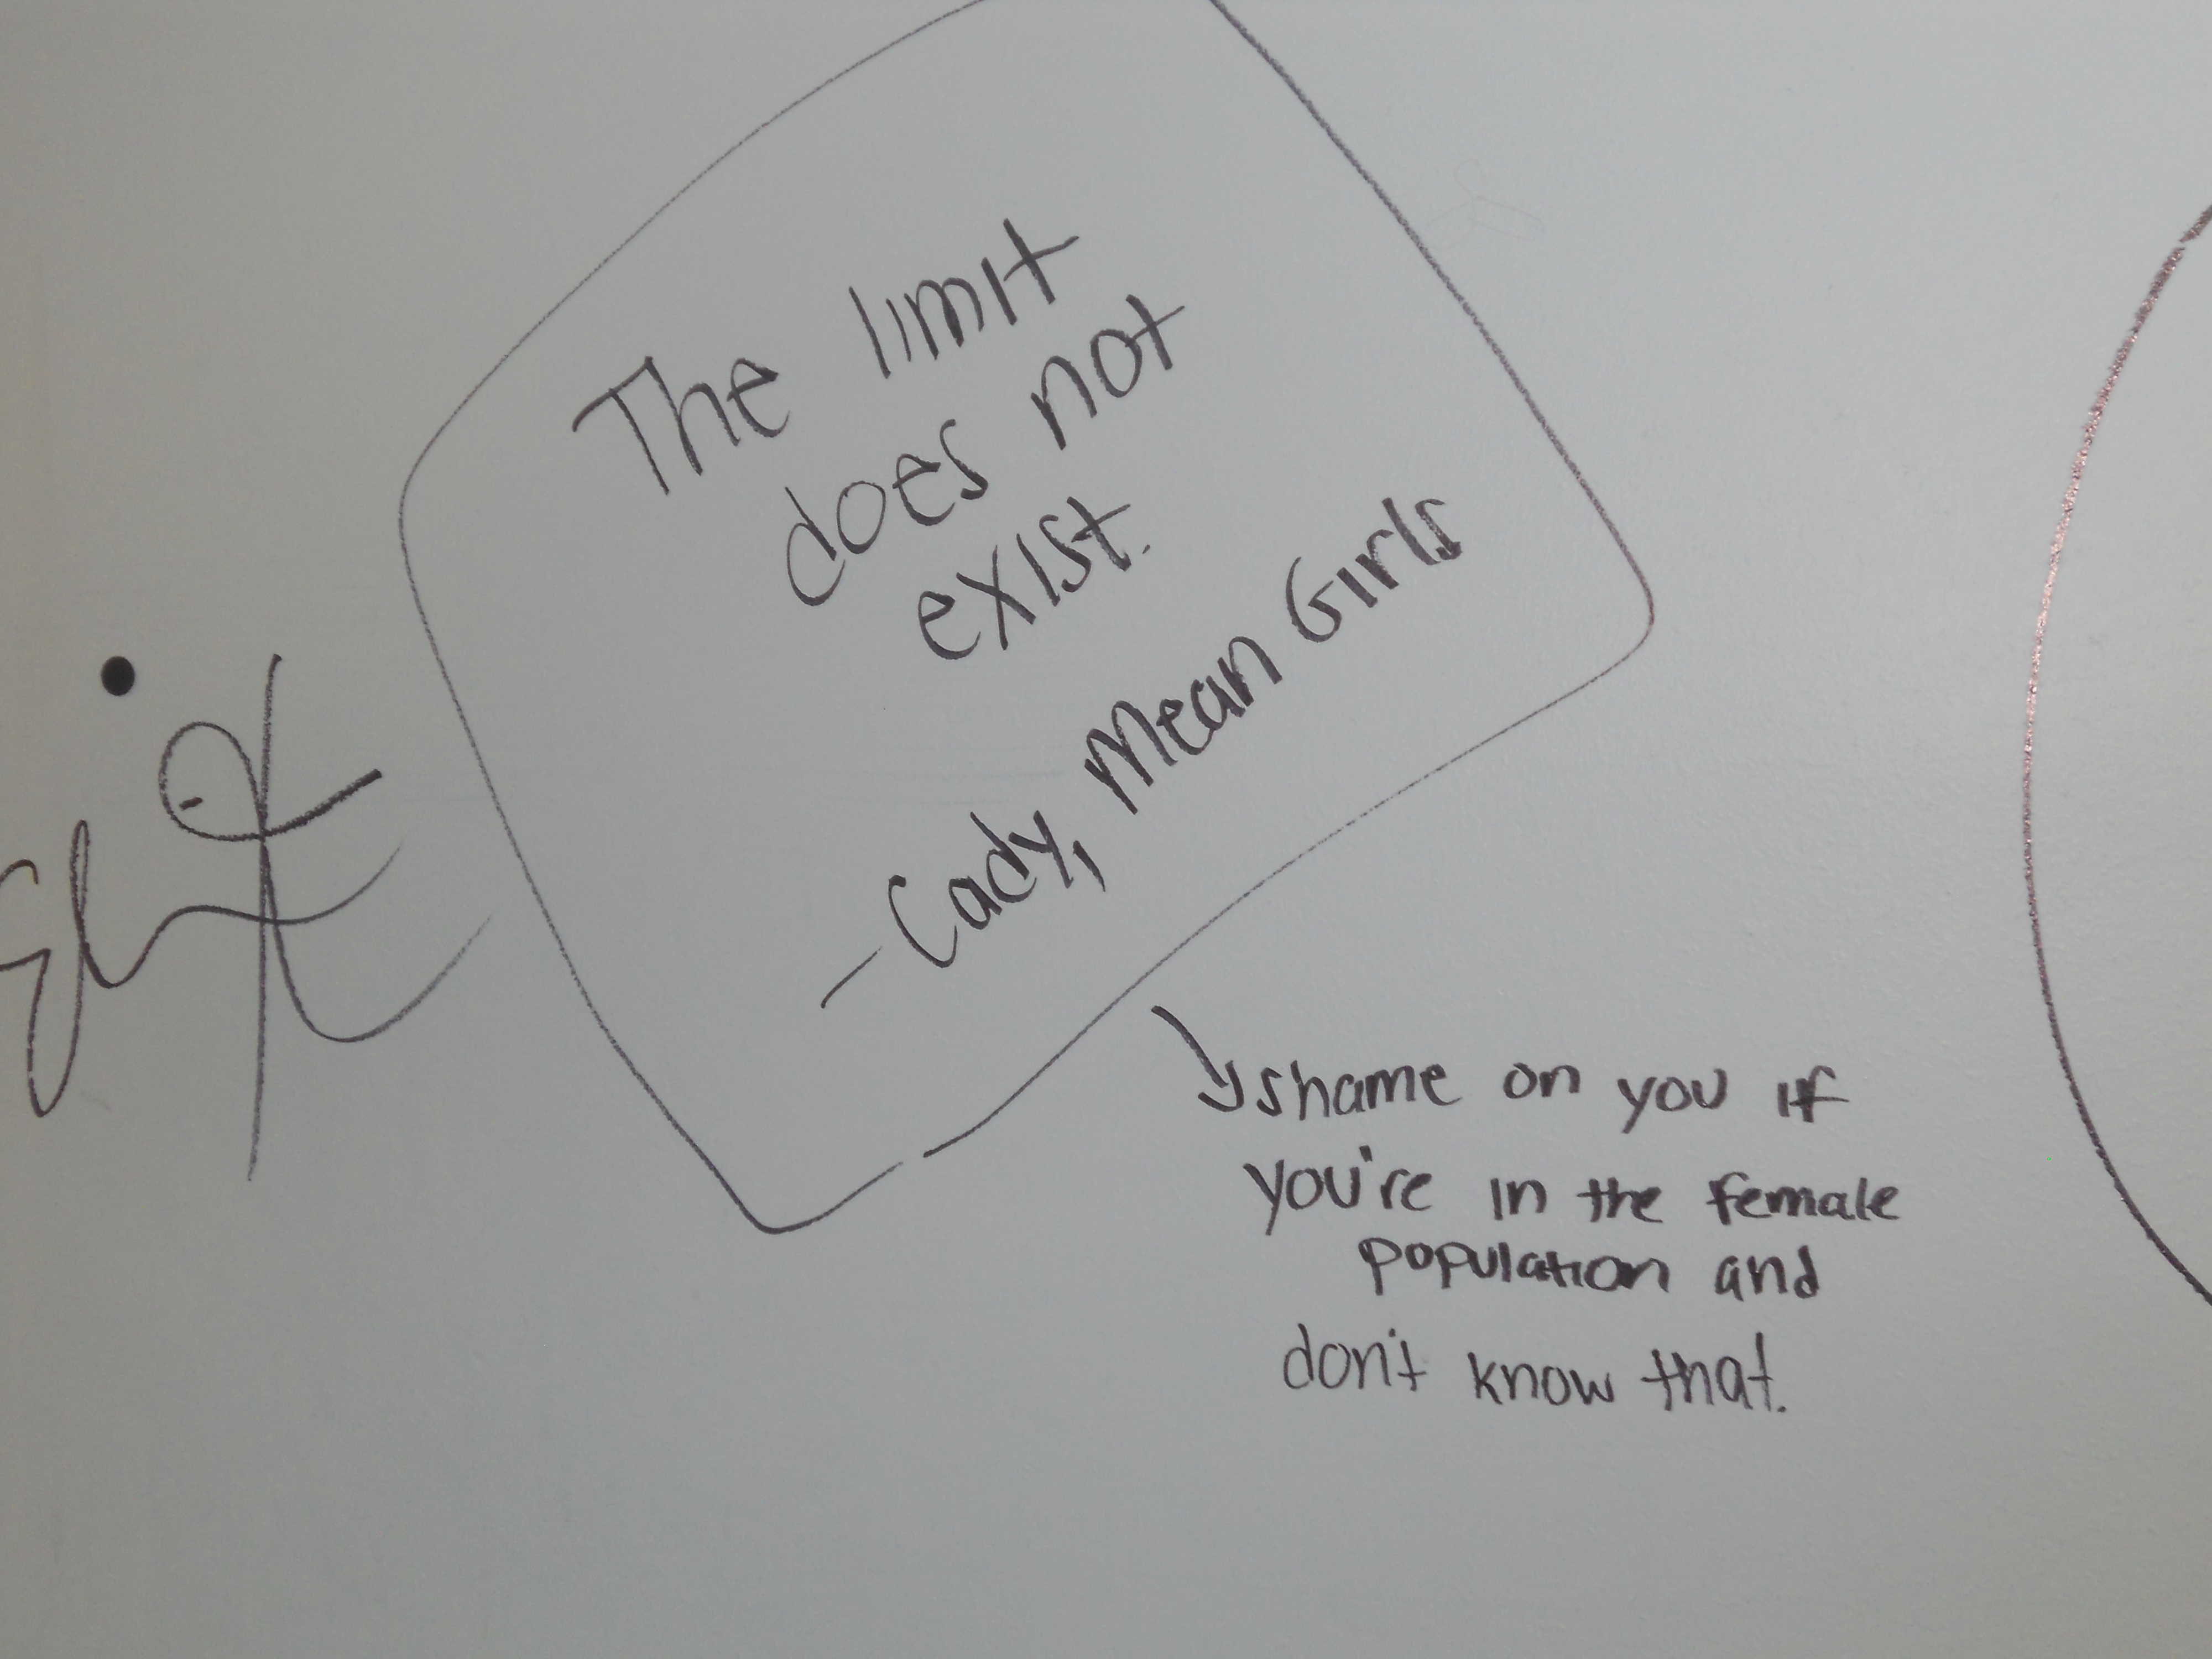 The limit
does not
exist.
– Cady, Mean Girls
shame on you if
you're in the female
population and
don't know that.